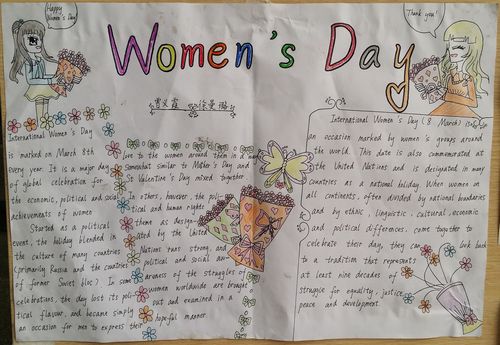 Happy
Women's Day
Thank you!
Women's Day
International Women's Day
is marked on March 8th
every year. It is a major day
of global celebration for
the economic, political and social
achievements of women
Started as a political
event, the holiday blended in
the culture of many countries
(primarily Russia and the countries
of former Soviet bloc). In some
celebrations, the day lost its poli-
tical flavour, and became simply
an occasion for men to express their
love to the women around them in a way
somewhat similar to Mother's Day and
St Valentine's Day mixed together
In others, however, the poli-
tical and human rights
theme as design-
ated by the United
Nations runs strong, and
political and social aw-
areness of the struggles of
women worldwide are brought
out and examined in a
hopeful manner.
International Women's Day (8 March) is
an occasion marked by women's groups around
the world. This date is also commemorated at
the United Nations and is designated in many
countries as a national holiday. When women on
all continents, often divided by national boundaries
and by ethnic, linguistic, cultural, economic
and political differences, come together to
celebrate their day, they can look back
to a tradition that represents
at least nine decades of
struggle for equality, justice,
peace and development.